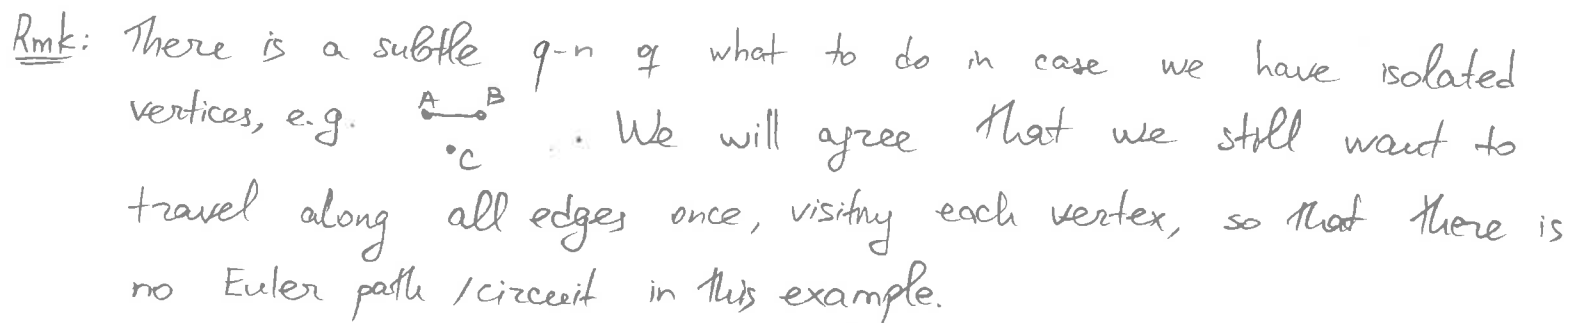 Rmk: There is a subtle q-n of what to do in case we have isolated
vertices, e.g. A B C . We will agree that we still want to
travel along all edges once, visiting each vertex, so that there is
no Euler path / circuit in this example.